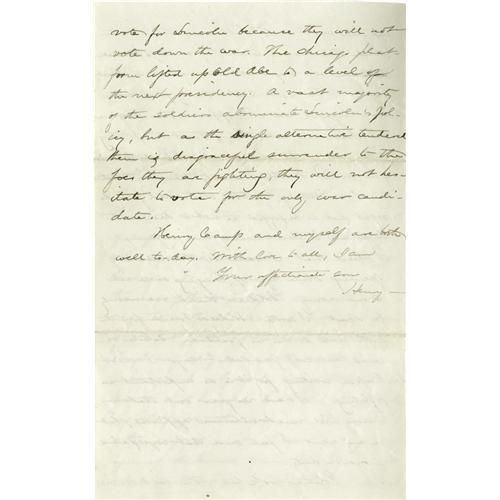 vote for Lincoln because they will not
vote down the war. The Chicago plat-
form lifted up Old Abe to a level of
the next presidency. A vast majority
of the soldiers abominate Lincoln's pol-
icy, but as the single alternative tendered
them is disgraceful surrender to the
foes they are fighting, they will not hes-
itate to vote for the only war candi-
date.
Henry Camp and myself are both
well to-day. With love to all, I am
Your affectionate son
Henry —